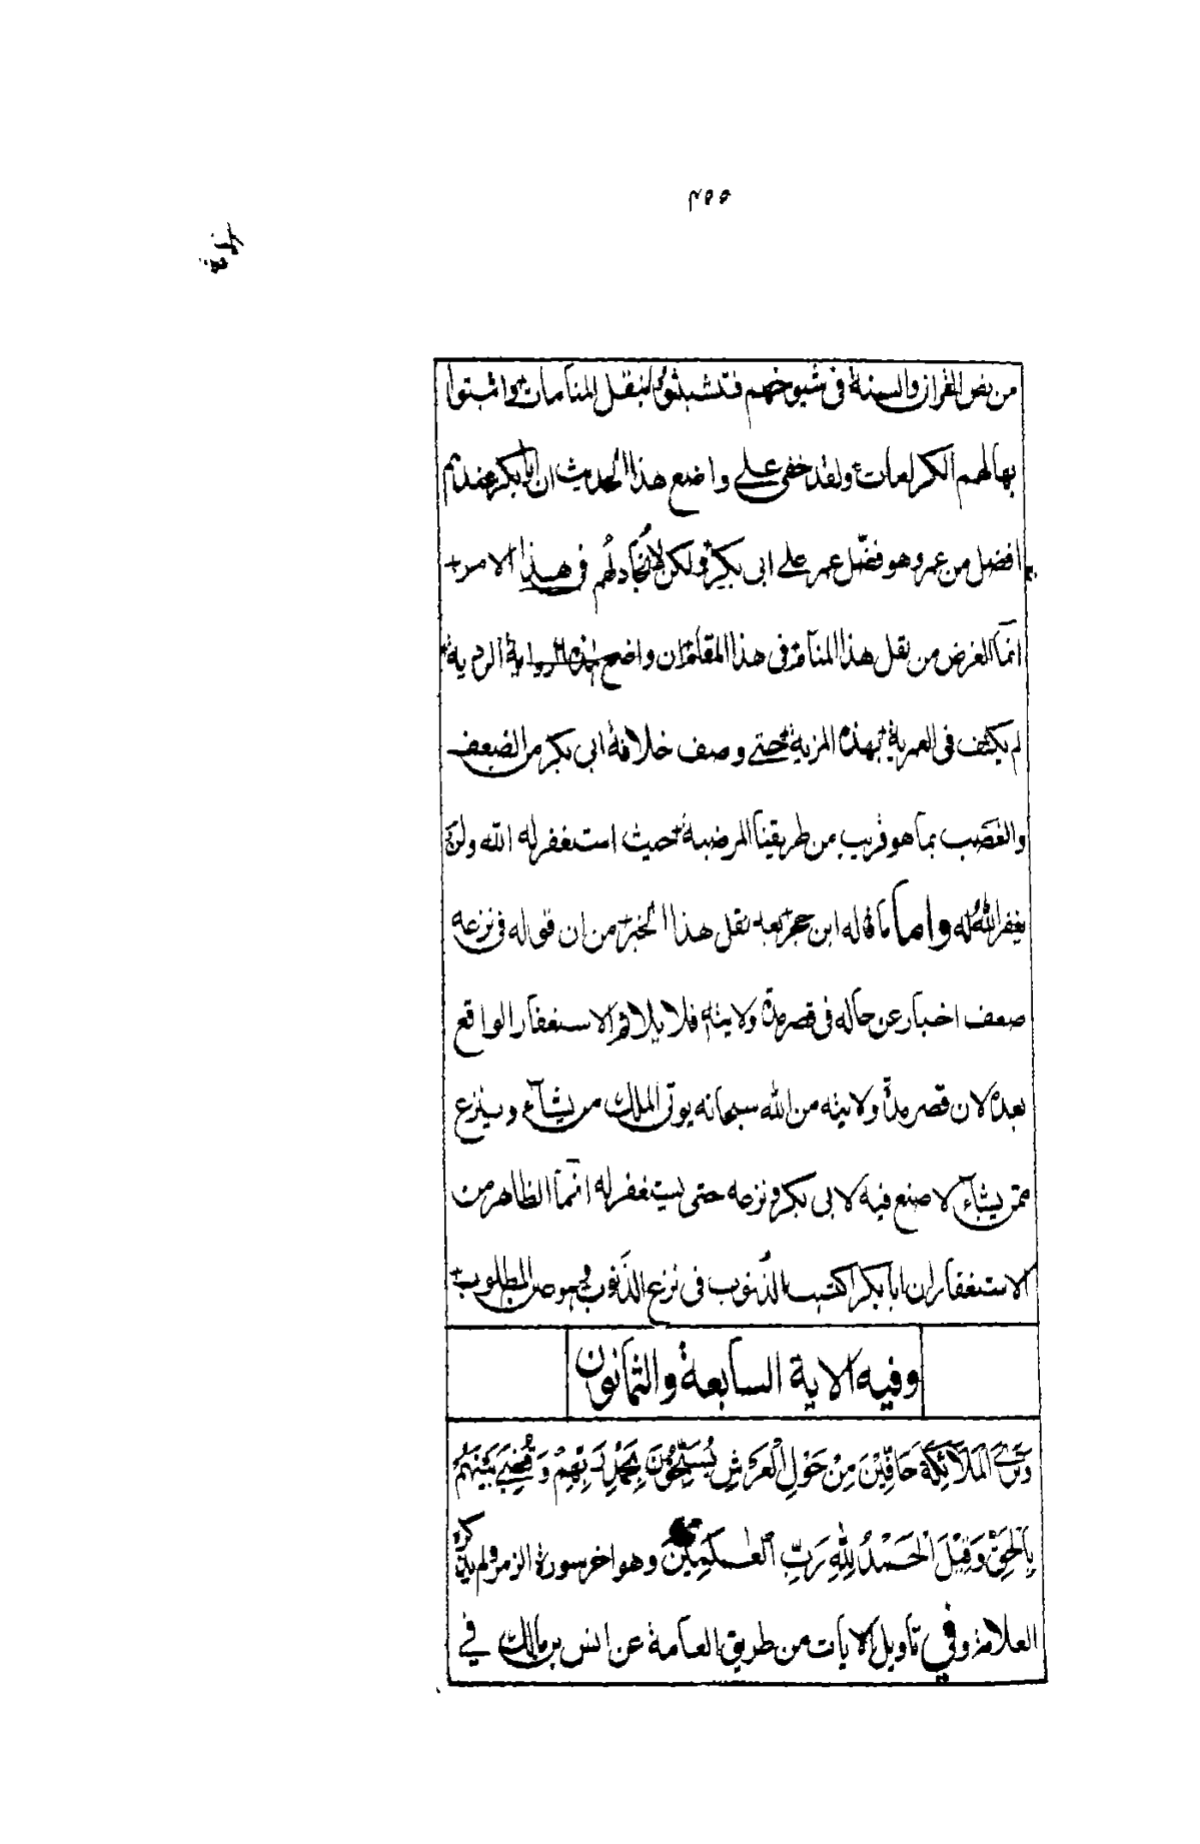 ٢٥٥
من نص القرآن والسنة في شيوخهم فتشبثوا بنقل المنامات واثبتوا
بها لهم الكرامات ولقد خفي على واضع هذا الحديث ان ابابكر عندهم
افضل من عمر وهو فضّل عمر على ابى بكر ولكن لا نُجادلُهم في هذا الامر
انمّا الغرض من نقل هذا المنام في هذا المقام ان واضع هذه الرواية الردية
لم يكتف في العمرية بهذه المزية حتى وصف خلافة ابى بكر من الضعف
والغصب بما هو قريب من طريقنا المرضية حيث استغفر له الله ولن
يغفر اللهُ له واما ما قاله ابن حجر بعد نقل هذا الخبر من ان قوله في نزعه
ضعف اخبار عن حاله في قصر مدة ولايته فلا يلائم الاستغفار الواقع
بعده لان قصر مدة ولايته من الله سبحانه يوتى الملك من يشاء وينزع
ممّن يشاء لا صنع فيه لابى بكر ونزعه حتى يستغفر له انمّا الظاهر من
الاستغفار ان ابابكر اكتسب الذُنوب في نزع الذَنوب فهو المطلوب
وفيه الاية السابعة والثمانون
وَتَرَى الْمَلَائِكَةَ حَافِّيْنَ مِنْ حَوْلِ الْعَرْشِ يُسَبِّحُوْنَ بِحَمْدِ رَبِّهِمْ وَقُضِيَ بَيْنَهُمْ
بِالْحَقِّ وَقِيْلَ الْحَمْدُ لِلّٰهِ رَبِّ الْعٰلَمِيْنَ وهو اخر سورة الزمر ولم يذكره
العلامة وفي تاويل الايات من طريق العامة عن انس بن مالك في